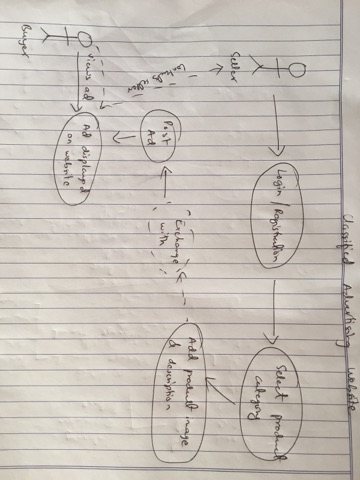 Classified Advertising Website
Seller
Login / Registration
Select product
category
Add product image
& description
Exchange
with
Post
Ad
Ad displayed
on website
Views ad
Buyer